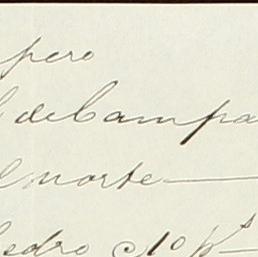 pero
de Campa
l norte
edro